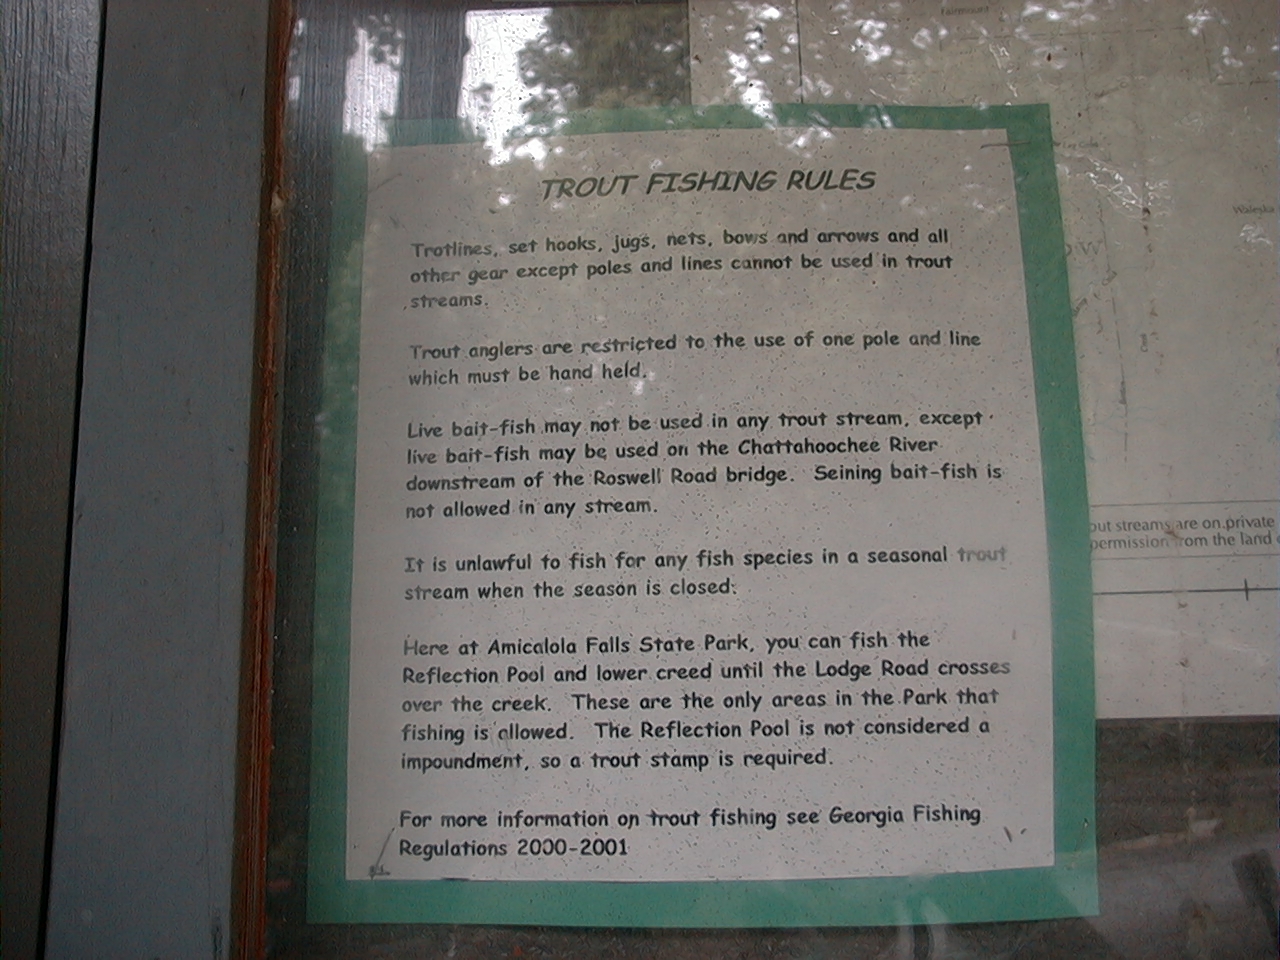 Fairmount
TROUT FISHING RULES
Trotlines, set hooks, jugs, nets, bows and arrows and all
other gear except poles and lines cannot be used in trout
streams.
Trout anglers are restricted to the use of one pole and line
which must be hand held.
Live bait-fish may not be used in any trout stream, except
live bait-fish may be used on the Chattahoochee River
downstream of the Roswell Road bridge. Seining bait-fish is
not allowed in any stream.
It is unlawful to fish for any fish species in a seasonal trout
stream when the season is closed.
Here at Amicalola Falls State Park, you can fish the
Reflection Pool and lower creed until the Lodge Road crosses
over the creek. These are the only areas in the Park that
fishing is allowed. The Reflection Pool is not considered a
impoundment, so a trout stamp is required.
For more information on trout fishing see Georgia Fishing
Regulations 2000-2001
Waleska
out streams are on private
permission from the land